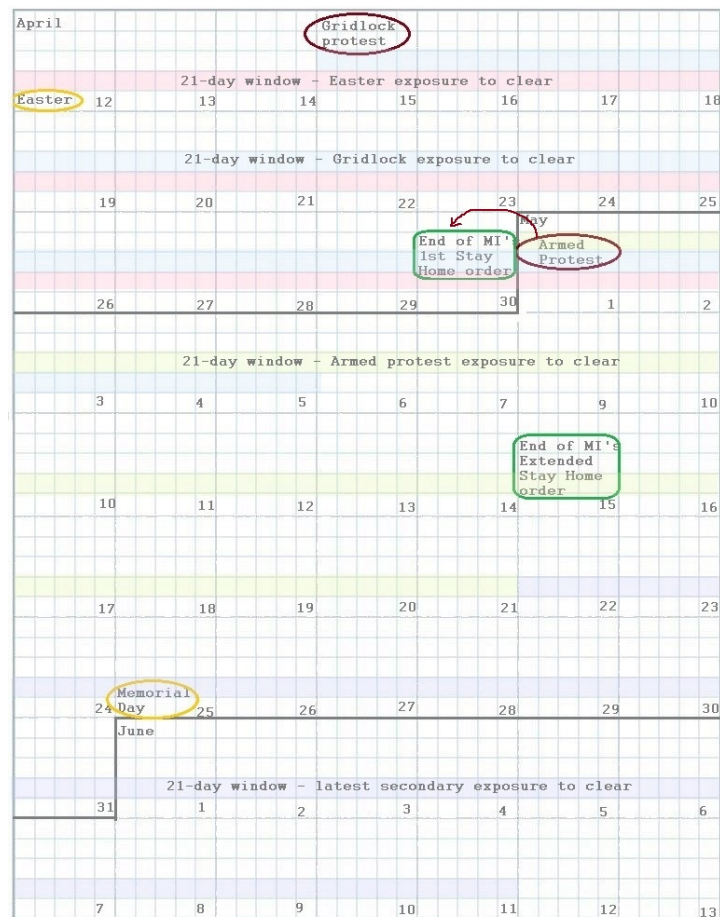 April
Gridlock
protest
21-day window - Easter exposure to clear
Easter 12 13 14 15 16 17 18
21-day window - Gridlock exposure to clear
19 20 21 22 23 24 25
May
End of MI's
1st Stay
Home order
Armed
Protest
26 27 28 29 30 1 2
21-day window - Armed protest exposure to clear
3 4 5 6 7 9 10
End of MI's
Extended
Stay Home
order
10 11 12 13 14 15 16
17 18 19 20 21 22 23
Memorial
Day
24 25 26 27 28 29 30
June
21-day window - latest secondary exposure to clear
31 1 2 3 4 5 6
7 8 9 10 11 12 13